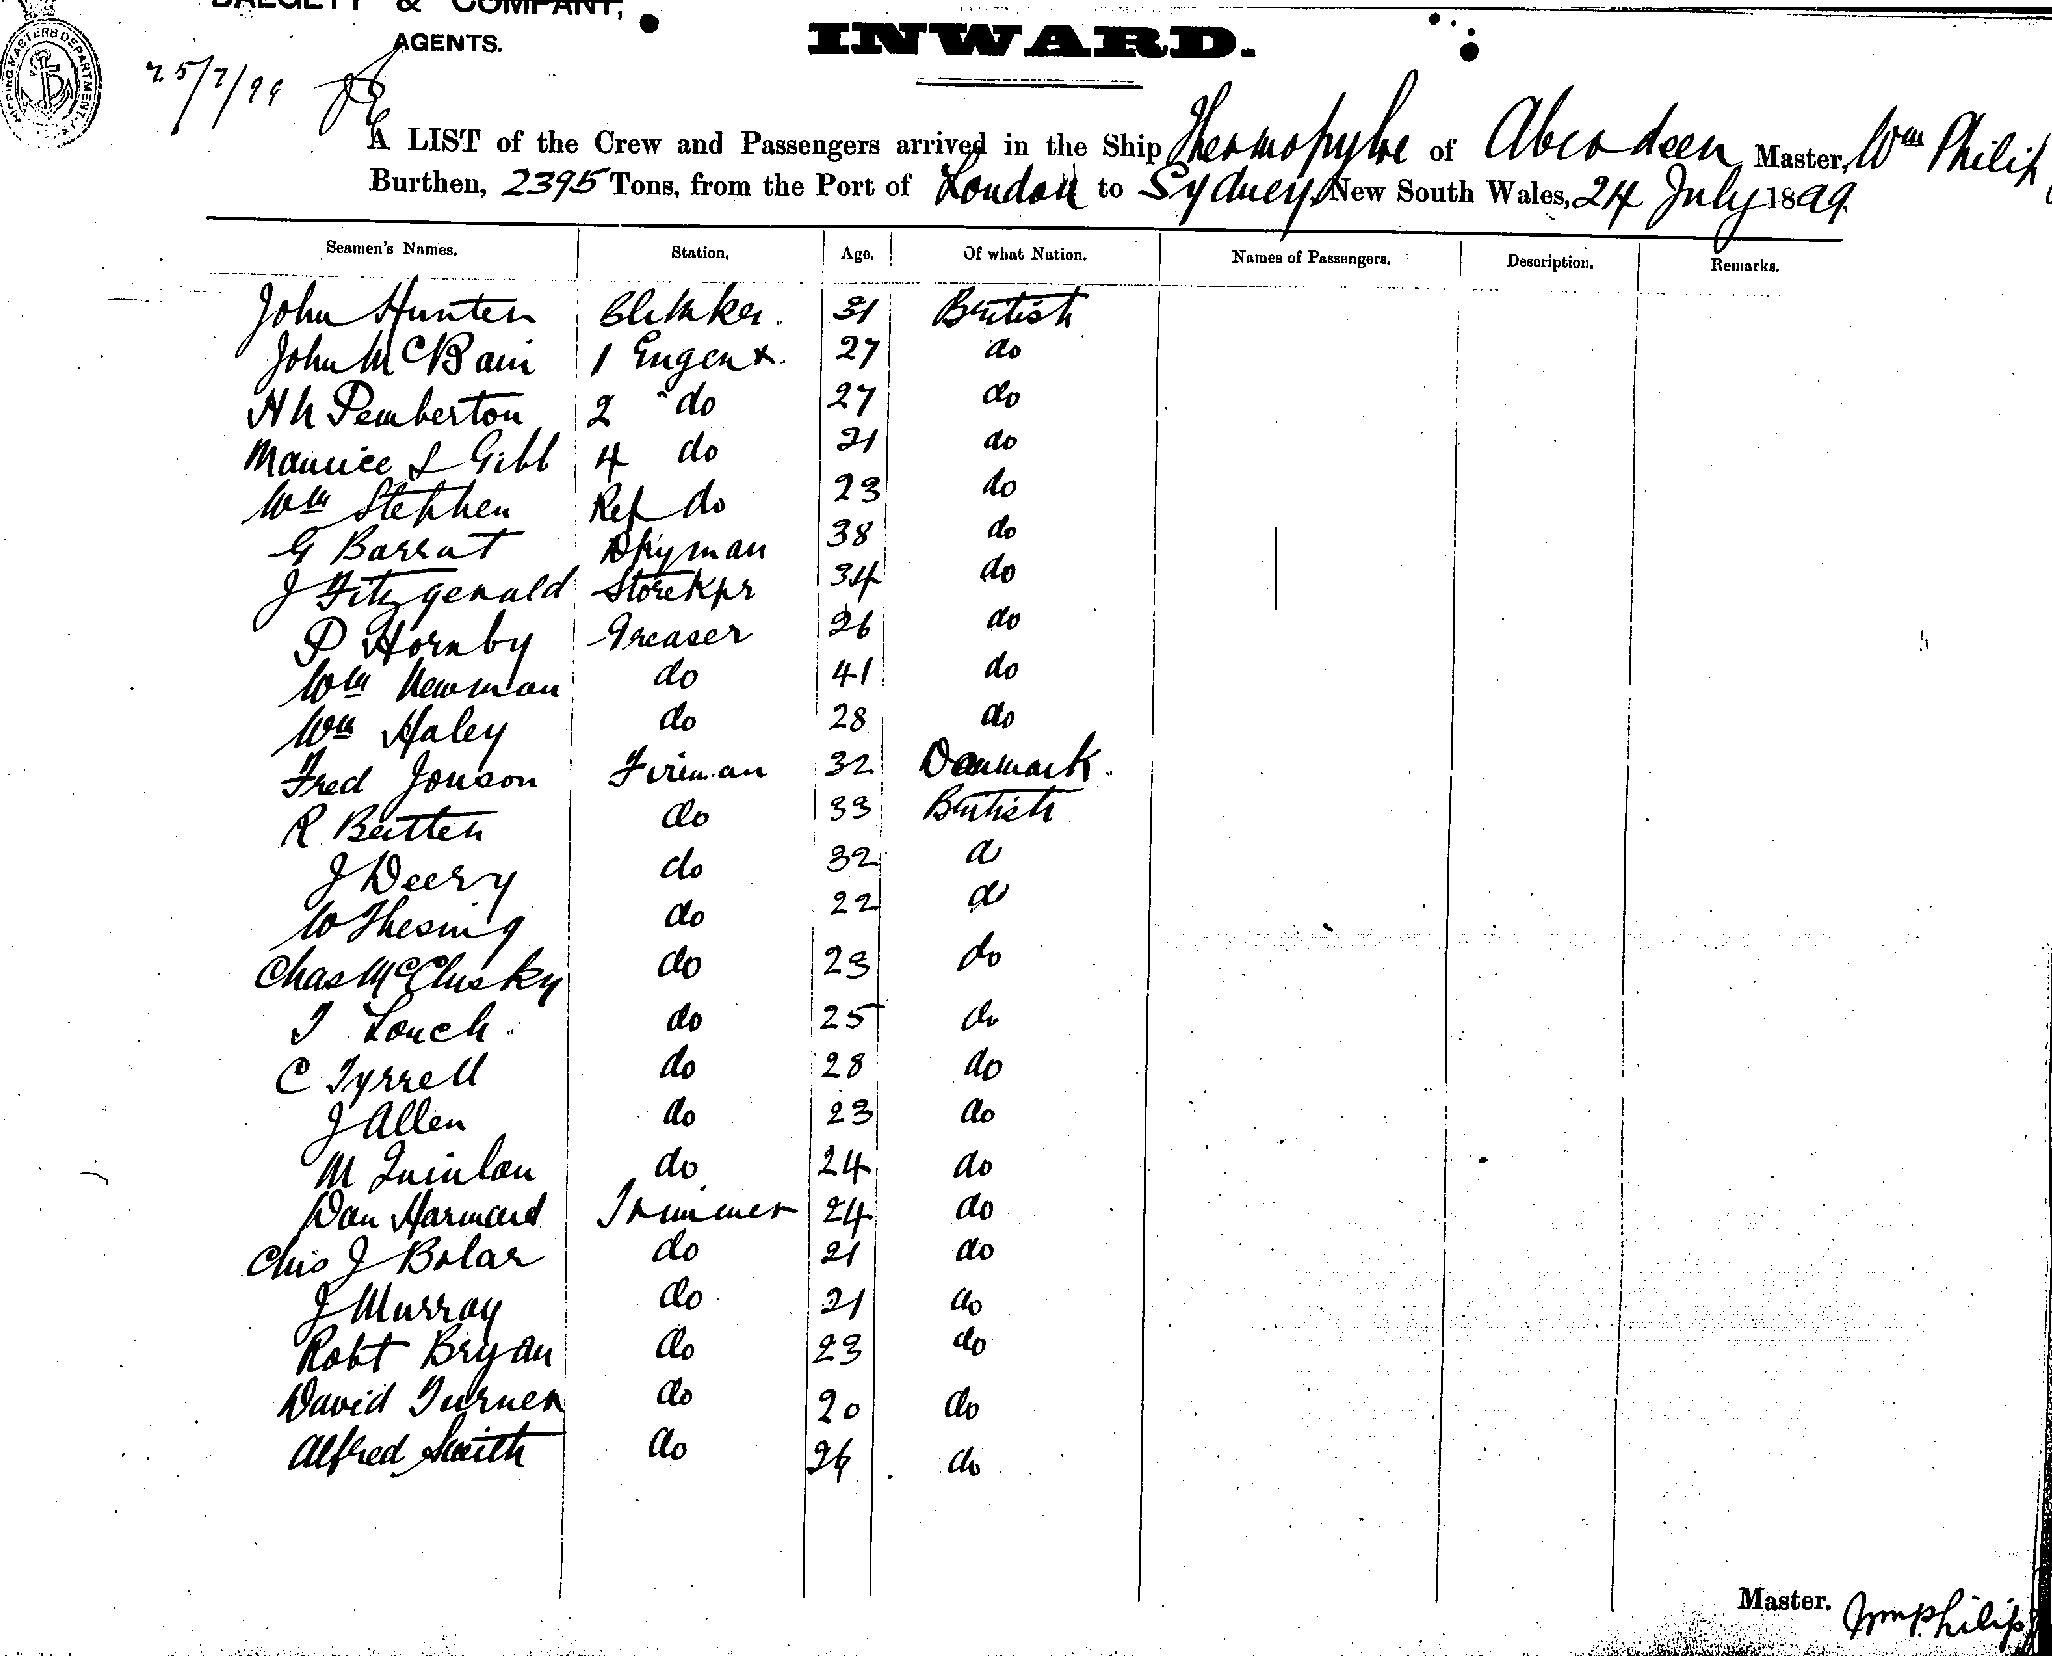 DALGETY & COMPANY,
AGENTS.
INWARD.
25/7/99
A LIST of the Crew and Passengers arrived in the Ship Thermopylae of Aberdeen, Master, Wm Philip
Burthen, 2395 Tons, from the Port of London to Sydney, New South Wales, 24 July 1899.
Seamen's Names. Station. Age. Of what Nation. Names of Passengers. Description. Remarks.
John Hunter 31 British
John McBain 1 27 do
H N Pemberton 2 do 27 do
Maurice S Gibb 4 do 21 do
Wm Stephen Ref do 23 do
G Barrat Dkyman 38 do
J Fitzgerald Storekpr 34 do
P Hornby Greaser 26 do
Wm Newman do 41 do
Wm Haley do 28 do
Fred Jonson Fireman 32 Danmark.
R Batten do 33 British
J Deery do 32 do
W Thesing do 22 do
Chas McClusky do 23 do
T Louch do 25 do
C Tyrrell do 28 do
J Allen do 23 do
M Quinlan do 24 do
Dan Trimmer 24 do
Chis J Bolar do 21 do
J Murray do 21 do
Robt Bryan do 23 do
David Turner do 20 do
Alfred Smith do 26 do
Master. Wm Philip